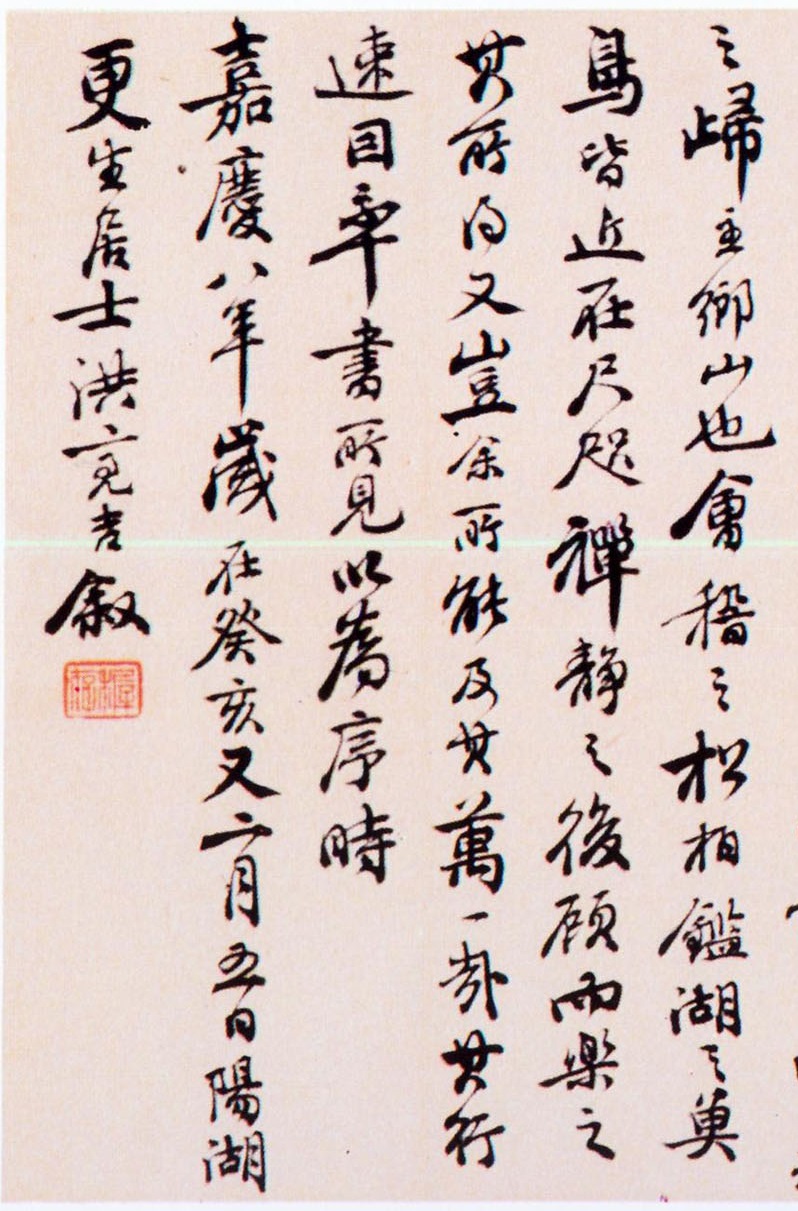 之歸主鄉山也會稽之松柏鑑湖之奠
鳬皆近在尺咫禪静之後顧而樂之
其所得又豈余所能及其萬一哉其行
速因率書所見以為序時
嘉慶八年歲在癸亥又二月五日陽湖
更生居士洪亮吉敘